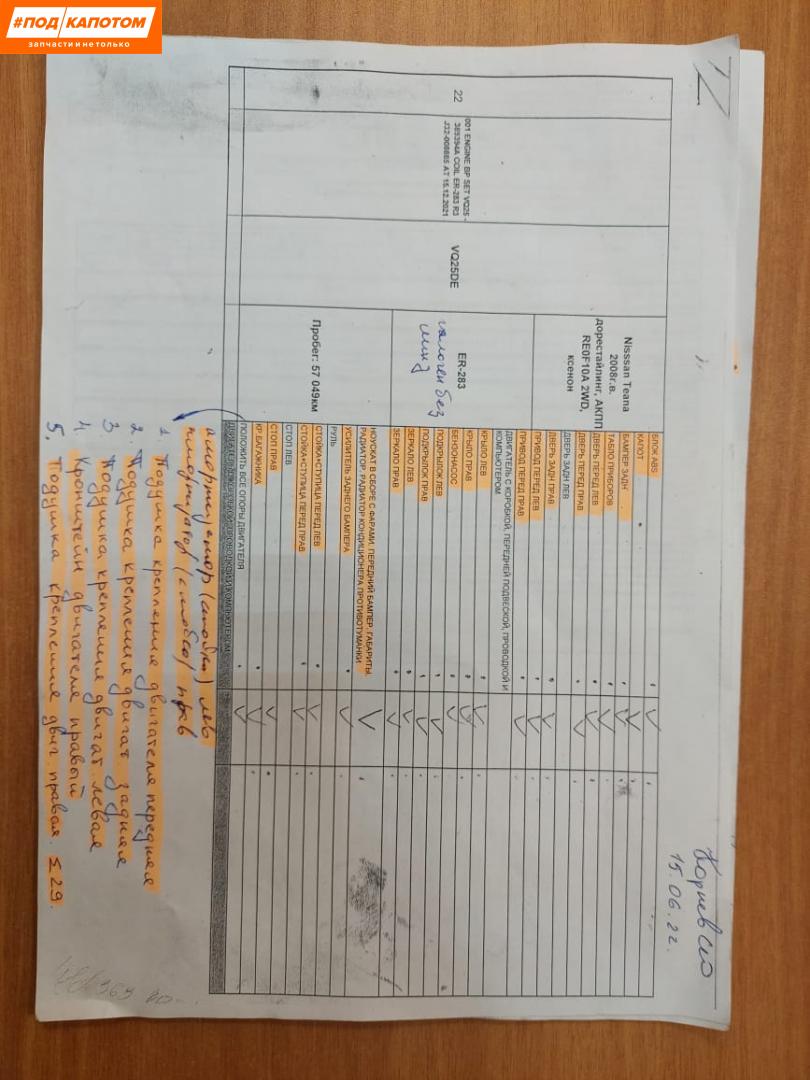 #ПОД КАПОТОМ
запчасти и не только
22
001 ENGINE BP SET VQ25 -
389394A COIL ER-283 R3
J32-008865 AT 15.12.2021
VQ25DE
Nisssan Teana
2008г.в.
дорестайлинг, АКПП
RE0F10A 2WD,
ксенон
ER-283
Пробег: 57 049км
БЛОК ABS
КАПОТ
БАМПЕР ЗАДН
ТАБЛО ПРИБОРОВ
ДВЕРЬ ПЕРЕД ЛЕВ
ДВЕРЬ ПЕРЕД ПРАВ
ДВЕРЬ ЗАДН ЛЕВ
ДВЕРЬ ЗАДН ПРАВ
ПРИВОД ПЕРЕД ЛЕВ
ПРИВОД ПЕРЕД ПРАВ
ДВИГАТЕЛЬ С КОРОБКОЙ, ПЕРЕДНЕЙ ПОДВЕСКОЙ, ПРОВОДКОЙ И
КОМПЬЮТЕРОМ
КРЫЛО ЛЕВ
КРЫЛО ПРАВ
БЕНЗОНАСОС
ПОДКРЫЛОК ЛЕВ
ПОДКРЫЛОК ПРАВ
ЗЕРКАЛО ЛЕВ
ЗЕРКАЛО ПРАВ
НОУСКАТ В СБОРЕ С ФАРАМИ, ПЕРЕДНИЙ БАМПЕР, ГАБАРИТЫ,
РАДИАТОР, РАДИАТОР КОНДИЦИОНЕРА, ПРОТИВОТУМАНКИ
УСИЛИТЕЛЬ ЗАДНЕГО БАМПЕРА
РУЛЬ
СТОЙКА+СТУПИЦА ПЕРЕД ЛЕВ
СТОЙКА+СТУПИЦА ПЕРЕД ПРАВ
СТОП ЛЕВ
СТОП ПРАВ
КР.БАГАЖНИКА
ПОЛОЖИТЬ ВСЕ ОПОРЫ ДВИГАТЕЛЯ
амортизатор (стойка) лев
амортизатор (стойка) прав
1. Подушка крепления двигателя передняя
2. Подушка крепления двигат задняя
3 Подушка крепления двигат. левая
4 Кронштейн двигателя правый
5. Подушка крепления двиг. правая. Σ 29.
15.06.22.